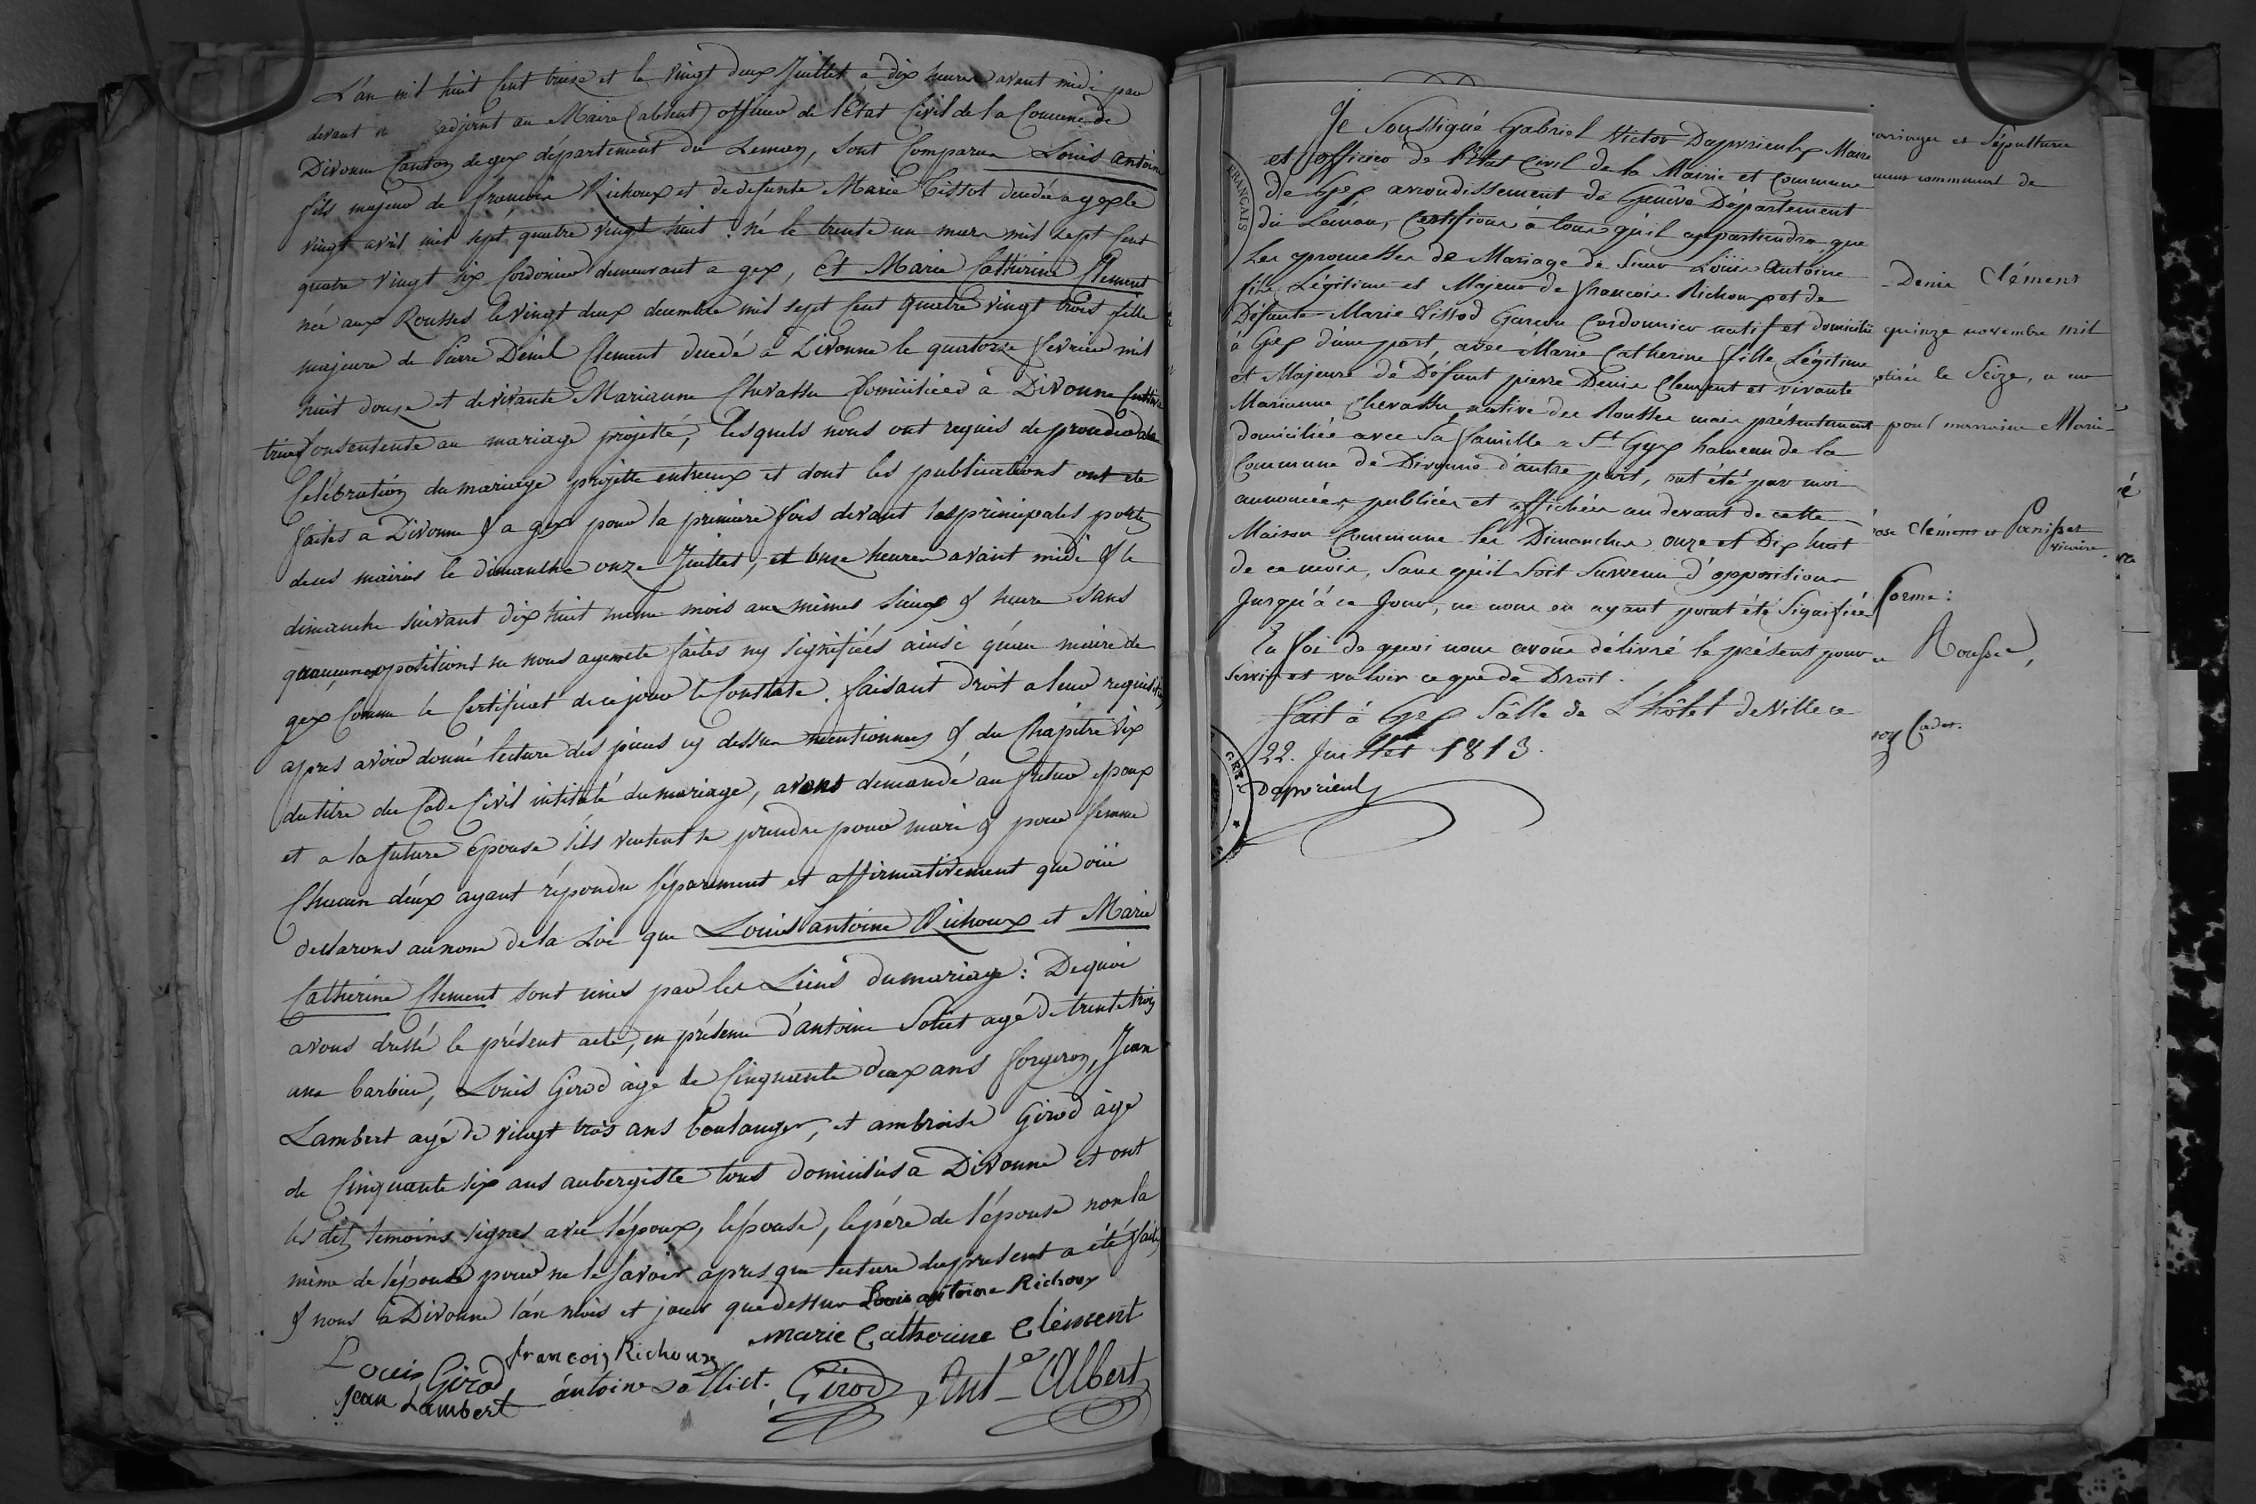 L'an mil huit Cent treize et le vingt deux Juillet à dix heures avant midi par
devant n adjoint au Maire (absent) officier de l'État Civil de la Commune de
Divonne Canton de gex département du Leman, sont Comparus Louis antoine
fils majeur de françois Richoux et de defunte Marie Tissot decedée a gex le
vingt avril mil sept quatre vingt huit. né le trente un mars mil sept Cent
quatre vingt six Cordonier demeurant a gex, et Marie Catherine Clement
née aux Rousses le vingt deux decembre mil sept Cent quatre vingt trois fille
majeure de Pierre Denis Clement decedé à Divonne le quatorze fevrier mil
huit douze et de vivante Marianne Chevassu domiciliées à Divonne Cultiva
trice Consentente au mariage projetté, lesquels nous ont requis de proceder a la
Célébration du mariage projetté entreux et dont les publications ont ete
faites a Divonne & a gex pour la premiere fois devant les principales portes
de ces mairies le dimanche onze Juillet, et onze heures avant midi & le
dimanche suivant dix huit meme mois aux mèmes lieux & heure sans
qu'aucunes oppositions ne nous ayent ete faites ny signifiées ainsi qu'au maire de
gex Comme le Certificat de ce jour le Constate. faisant droit a leur requisition
apres avoir donné lecture des pieces cy dessus mentionnees & du Chapitre six
du titre du Code Civil intitulé du mariage, avons demandé au futur epoux
et a la future Epouse s'ils veulent se prendre pour mari & pour femme
Chacun d'eux ayant répondu séparement et affirmativement que oüi
declarons au nom de la Loi que Louis antoine Richoux et Marie
Catherine Clement sont unis par les Liens du mariage: De quoi
avons dressé le présent acte, en présence d'antoine Soliet agé de trente trois
ans barbier, Louis Girod âge de Cinquante deux ans forgeron, Jean
Lambert agé de vingt trois ans boulanger, et ambroise Girod âgé
de Cinquante six ans aubergiste tous domiciliés a Divonne et ont
les dits temoins signes avec l'époux, l'épouse, le père de l'épouse non la
mème de l'épouse pour ne le savoir apres que lecture du present a été faite
& nous à Divonne l'an mois et jour que dessus Louis antoine Richoux
marie Catherine Clément
Louis Girod françois Richoux
jean Lambert antoine Solliet. Girod Ant^e Albert
Je Soussigné Gabriel Victor Dapvrieulx Maire
et officier de l'Etat Civil de la Mairie et Commune
de Gex arrondissement de Genêve Département
du Leman, Certifions a tous qu'il appartiendra que
Les promesses de Mariage de Sieur Loüis Antoine
fils Légitime et Majeur de françois Richoux et de
Défunte Marie Tissod Garçon Cordonnier natif et domicilié
à Gex d'une part avec Marie Catherine fille Légitime
et Majeure de Défunt pierre Denis Clement et vivante
Marianne Chevassu native des Rousses mais présentement
domiciliée avec Sa famille a St Gyx hameau de la
Commune de Divonne d'autre part, ont été par moi
annoncées, publiées et affichées au devant de cette
Maison Commune les Dimanches onze et Dix huit
de ce mois, Sans qu'il Soit Survenu d'oppositions
Jusqu'à ce Jour, ne nous en ayant point été Signifiée
En foi de quoi nous avons délivré le présent pour
Servir et valoir ce que de Droit.
fait à Gex Sâlle de L'hôtel de Ville ce
22. Juillet 1813.
Dapvrieulx
FRANÇAIS
GEX
mariages et Sépultures
commune de
Denis Clément
quinze novembre mil
ptisée le Seize, a eu
pour marraine Marie
Clément et Panisset
vicaire.
forme:
Rousses,
Cadet.